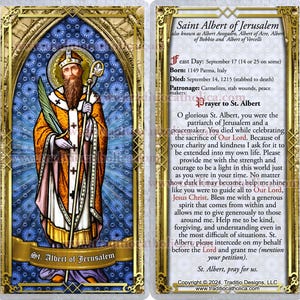 St. Albert of Jerusalem
Saint Albert of Jerusalem
also known as Albert Avogadro, Albert of Azzo, Albert
of Bobbio and Albert of Vercelli
Feast Day: September 17 (14 or 25 on some)
Born: 1149 Parma, Italy
Died: September 14, 1215 (stabbed to death)
Patronage: Carmelites, sick people, peace
Prayer to St. Albert
O glorious St. Albert, you were the
patriarch of Jerusalem and a
peacemaker. You died while celebrating
the sacrifice of Our Lord. Because of
your charity and kindness I ask for it to
be extended into my own life. Please
provide me with the strength and
courage to be a light in this world just
as you were in your time. No matter
how dark it may become, help me shine
like you were to guide all to Our Lord,
Jesus Christ. Bless me with a generous
spirit that comes from within and
allows me to give generously to those
around me. Help me to be kind,
forgiving, and understanding even in
the most difficult of situations. St.
Albert, please intercede on my behalf
before the Lord and grant me (mention
your petition).
St. Albert, pray for us.
Copyright © 2024. Traditio Designs, LLC
www.traditiocatholica.com